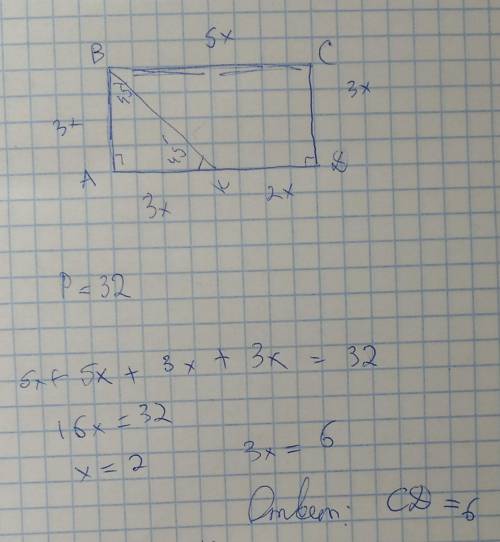 5x
B C
45°
3x
3x
45°
A K D
3x 2x
P = 32
5x + 5x + 3x + 3x = 32
16x = 32
x = 2
3x = 6
Ответ: CD = 6